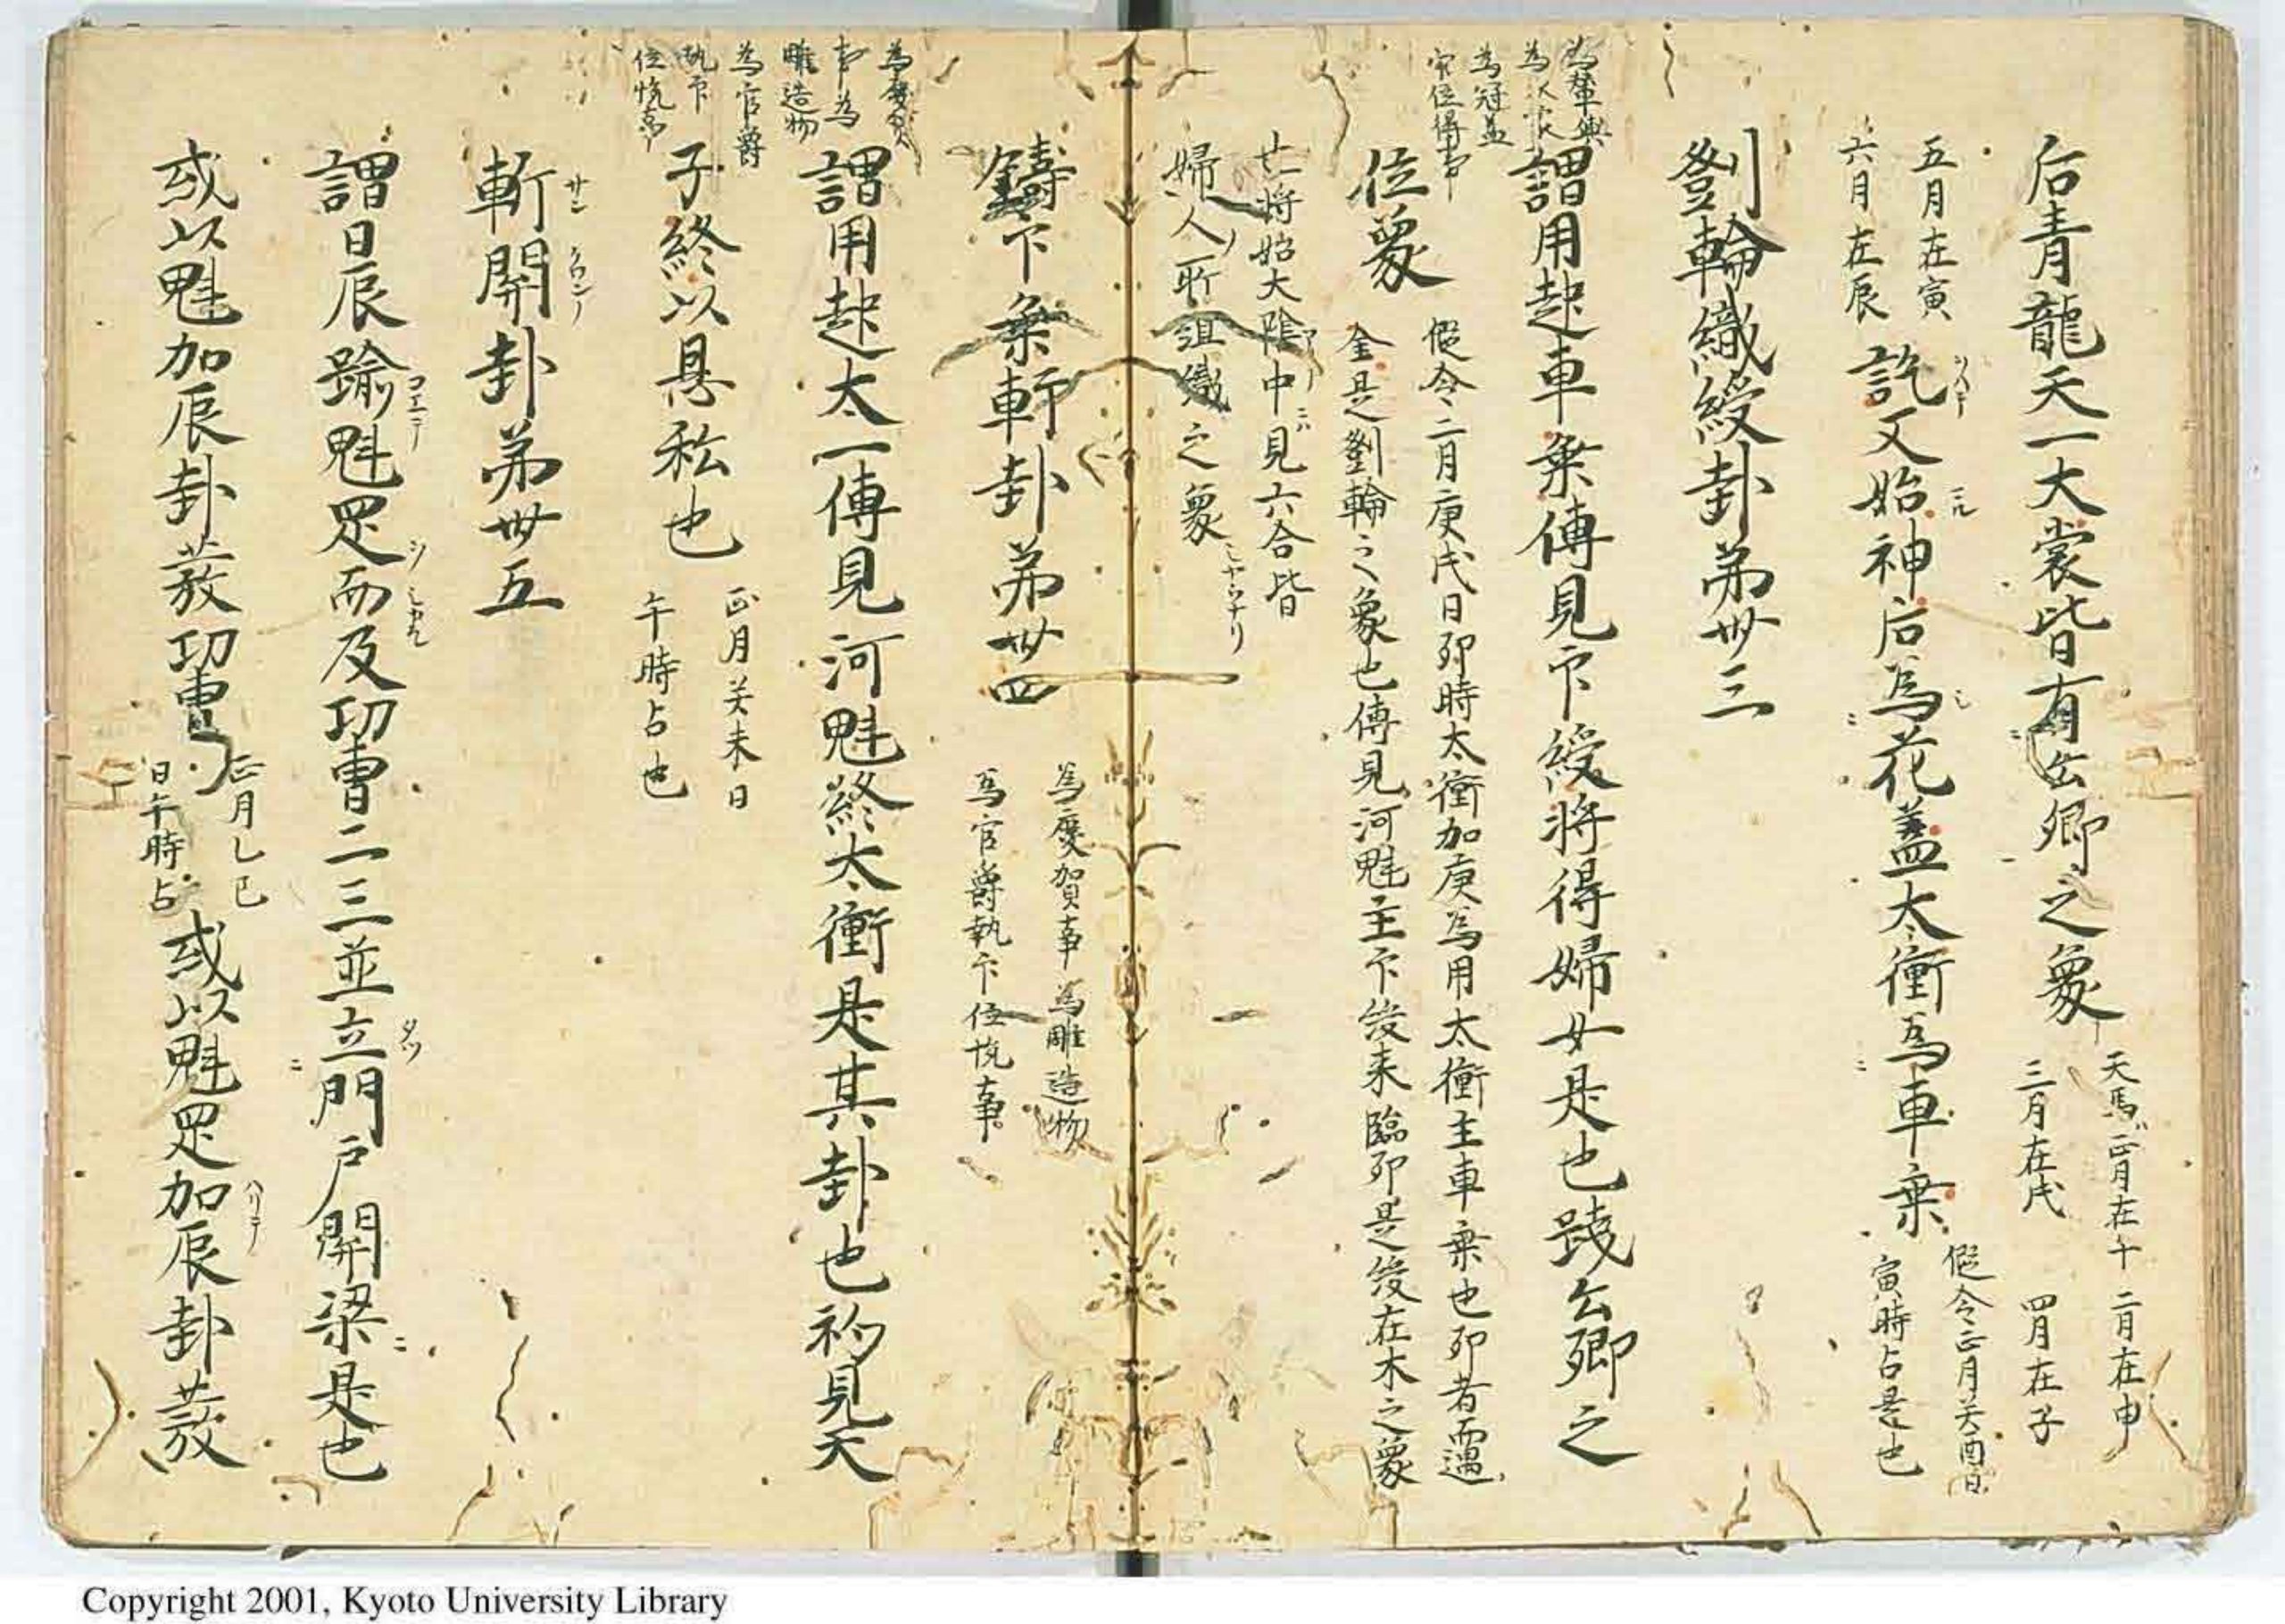 后青龍天一大裳皆有公卿之象
天馬正月在午 二月在申
三月在戌 四月在子
五月在寅
六月在辰
訖又始神后為花蓋太衝為車乗
假令正月癸酉日
寅時占是也
劉輪織綬卦第卅三
為冠蓋
謂用起車乗傳見下綬将得婦女是也践公卿之
位象
假令二月庚戌日卯時太衝加庚為用太衝主車乗也卯者而遇
金是劉輪之象也傳見河魁主下綬来臨卯是綬在木之象
亡将始大陰中見六合皆
婦人所組織之象
鑄下乗軒卦第卅四
為慶賀事為雕造物
為官爵執下位悦事
為慶賀
事為
雕造物
為官爵
執下
位悦事
謂用起太一傳見河魁終太衝是其卦也初見天
子終以恩私也
正月癸未日
午時占也
斬開卦第卅五
サン
謂日辰踰魁罡而及功曹二三並立門戸開梁是也
コエテ
或以魁加辰卦蓑功曹
正月乚巳
日午時占
或以魁罡加辰卦蓑
Copyright 2001, Kyoto University Library